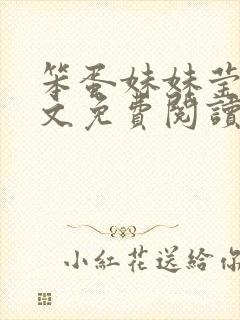 笨蛋妹妹莹
文免費閱讀
小紅花送給你